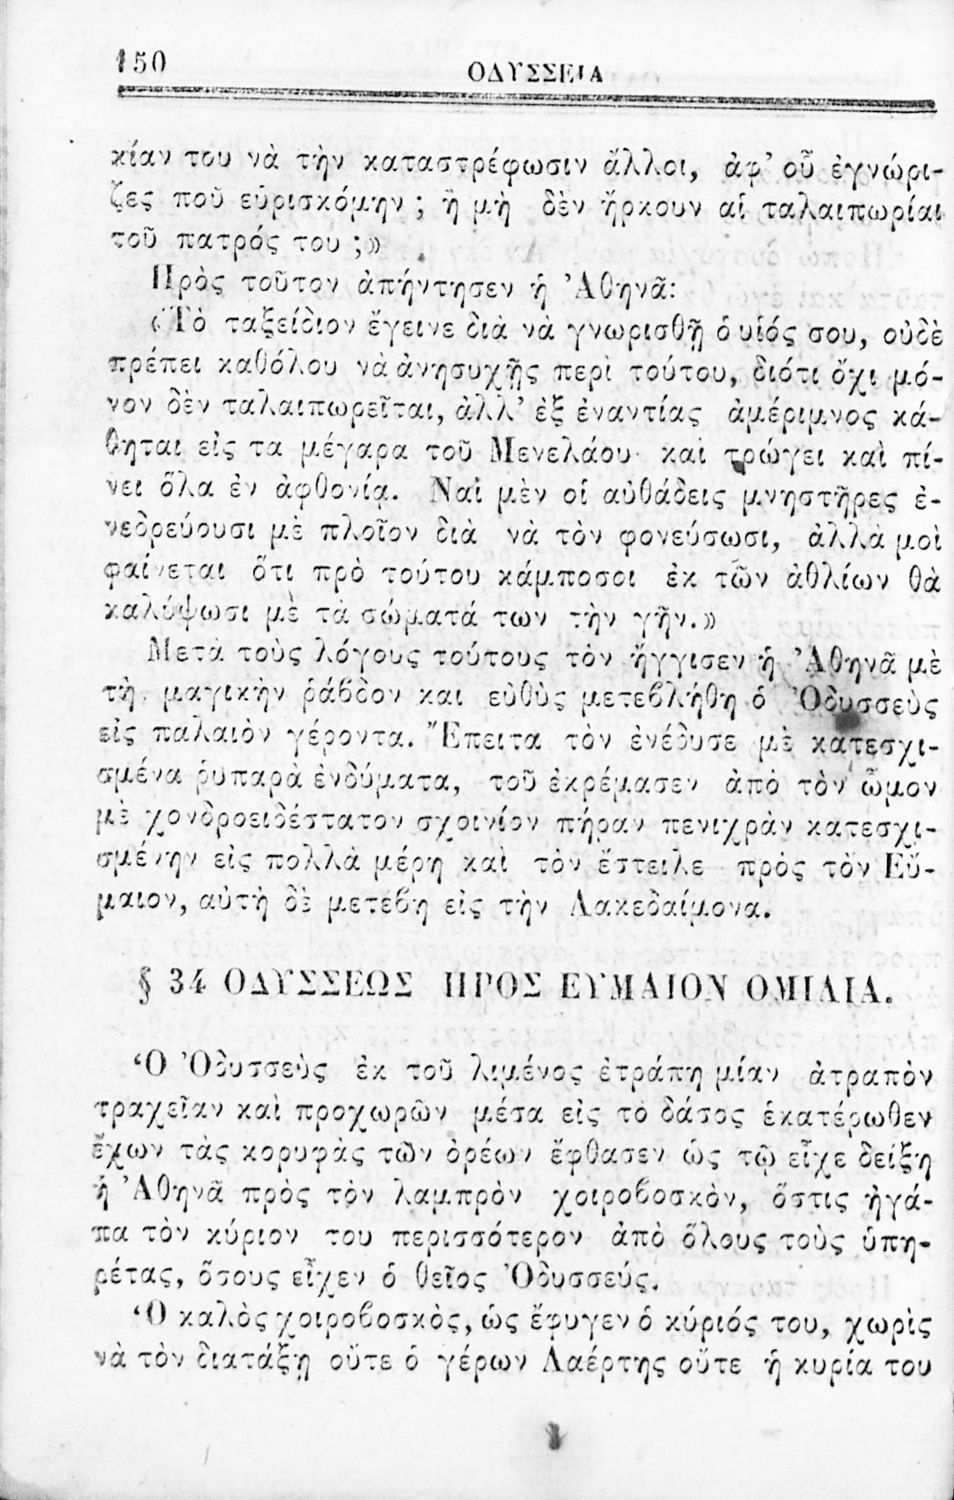 150
ΟΔΥΣΣΕΙΑ
κίαν του νὰ τὴν καταστρέφωσιν ἄλλοι, ἀφ’ οὗ ἐγνώρι-
ζες ποῦ εὑρισκόμην ; ἢ μὴ δὲν ἤρκουν αἱ ταλαιπωρίαι
τοῦ πατρός του ;»
Πρὸς τοῦτον ἀπήντησεν ἡ ’Αθηνᾶ:
«Τὸ ταξείδιον ἔγεινε διὰ νὰ γνωρισθῇ ὁ υἱός σου, οὐδὲ
πρέπει καθόλου νὰ ἀνησυχῇς περὶ τούτου, διότι ὄχι μό-
νον δὲν ταλαιπωρεῖται, ἀλλ’ ἐξ ἐναντίας ἀμέριμνος κά-
θηται εἰς τα μέγαρα τοῦ Μενελάου καὶ τρώγει καὶ πί-
νει ὅλα ἐν ἀφθονίᾳ. Ναὶ μὲν οἱ αὐθάδεις μνηστῆρες ἐ-
νεδρεύουσι μὲ πλοῖον διὰ νὰ τὸν φονεύσωσι, ἀλλὰ μοὶ
φαίνεται ὅτι πρὸ τούτου κάμποσοι ἐκ τῶν ἀθλίων θὰ
καλύψωσι μὲ τὰ σώματά των τὴν γῆν.»
Μετὰ τοὺς λόγους τούτους τὸν ἤγγισεν ἡ ’Αθηνᾶ μὲ
τὴ μαγικὴν ῥάβδον και εὐθὺς μετεβλήθη ὁ ’Οδυσσεὺς
εἰς παλαιὸν γέροντα. Ἔπειτα τὸν ἐνέδυσε μὲ κατεσχι-
σμένα ῥυπαρὰ ἐνδύματα, τοῦ ἐκρέμασεν ἀπὸ τὸν ὦμον
μὲ χονδροειδέστατον σχοινίον πήραν πενιχρὰν κατεσχι-
σμένην εἰς πολλὰ μέρη καὶ τὸν ἔστειλε πρὸς τὸν Εὔ-
μαιον, αὐτὴ δὲ μετέβη εἰς τὴν Λακεδαίμονα.
§ 34 ΟΔΥΣΣΕΩΣ ΠΡΟΣ ΕΥΜΑΙΟΝ ΟΜΙΛΙΑ.
‘Ο ’Οδυσσεὺς ἐκ τοῦ λιμένος ἐτράπη μίαν ἀτραπὸν
τραχεῖαν καὶ προχωρῶν μέσα εἰς τὸ δάσος ἑκατέρωθεν
ἔχων τὰς κορυφὰς τῶν ὀρέων ἔφθασεν ὡς τῷ εἶχε δείξῃ
ἡ ’Αθηνᾶ πρὸς τὸν λαμπρὸν χοιροβοσκὸν, ὅστις ἠγά-
πα τὸν κύριον του περισσότερον ἀπὸ ὅλους τοὺς ὑπη-
ρέτας, ὅσους εἶχεν ὁ θεῖος ’Οδυσσεύς.
‘Ο καλὸς χοιροβοσκὸς, ὡς ἔφυγεν ὁ κύριός του, χωρὶς
νὰ τὸν διατάξῃ οὔτε ὁ γέρων Λαέρτης οὔτε ἡ κυρία του